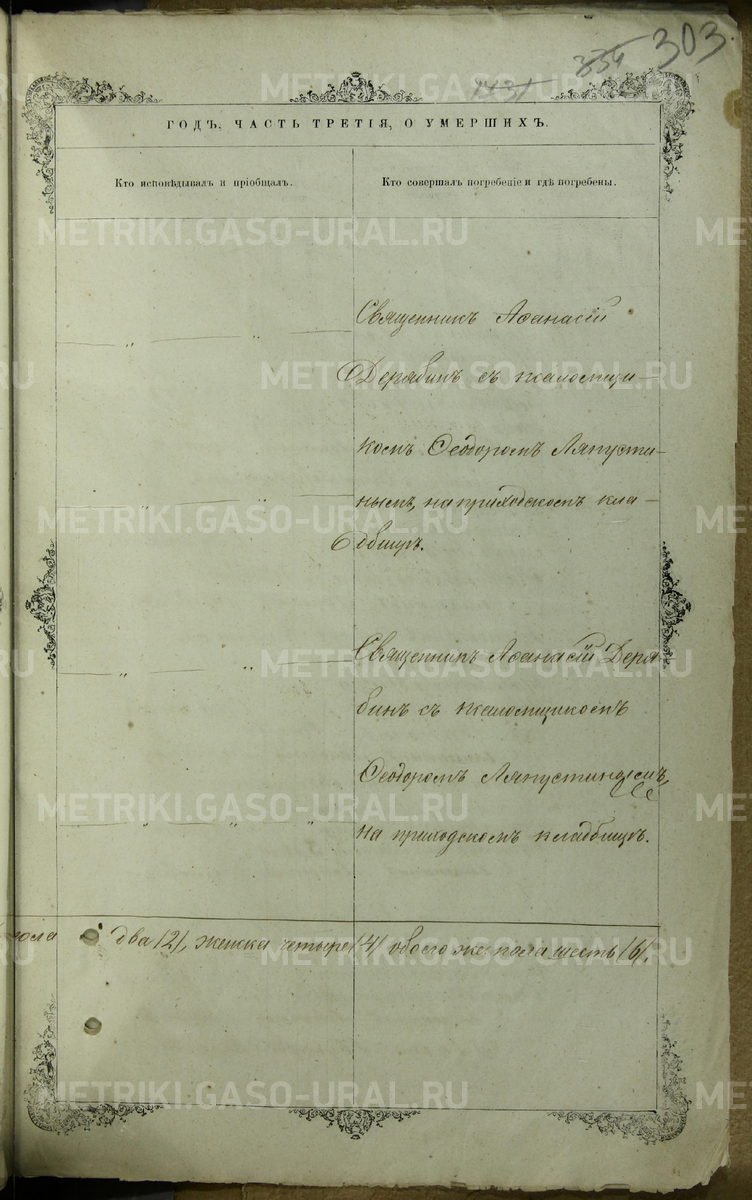 303.
334
1431
ГОДЪ, ЧАСТЬ ТРЕТІЯ, О УМЕРШИХЪ.
Кто исповѣдывалъ и пріобщалъ.
Кто совершалъ погребеніе и гдѣ погребены.
Священникъ Аѳанасій
Дерябинъ съ псаломщи–
комъ Ѳеодоромъ Ляпусти–
нымъ, на приходскомъ кла–
дбищѣ.
Священникъ Аѳанасій Деря–
бинъ съ псаломщикомъ
Ѳеодоромъ Ляпустинымъ,
на приходскомъ кладбищѣ.
пола два /2/, женска четыре /4/ обоего же пола шесть /6/.
METRIKI.GASO-URAL.RU